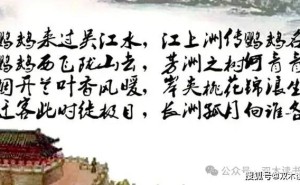 鹦鹉来过吴江水，江上洲传鹦鹉名
鹦鹉西飞陇山去，芳洲之树何青青
烟开兰叶香风暖，岸夹桃花锦浪生
迁客此时徒极目，长洲孤月向谁
公众号
搜狐号@双木